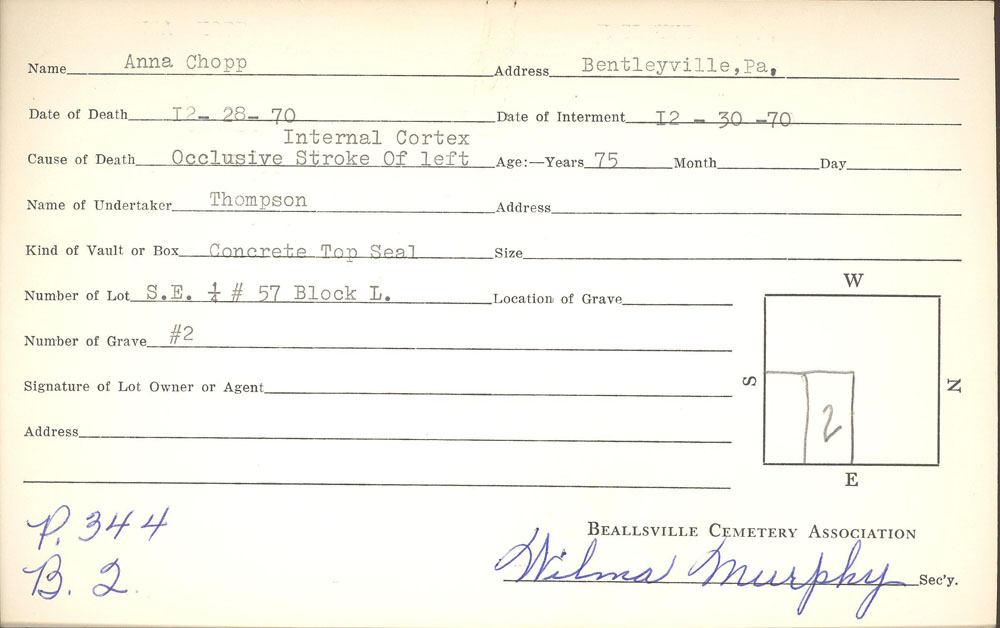 Name Anna Chopp Address Bentleyville,Pa,
Date of Death I2- 28- 70 Date of Interment I2 - 30 -70
Internal Cortex
Cause of Death Occlusive Stroke Of left Age:—Years 75 Month Day
Name of Undertaker Thompson Address
Kind of Vault or Box Concrete Top Seal Size
Number of Lot S.E. ¼ # 57 Block L. Location of Grave
W
Number of Grave #2
S
N
Signature of Lot Owner or Agent
2
Address
E
P. 344
BEALLSVILLE CEMETERY ASSOCIATION
B. 2
Wilma Murphy Sec'y.